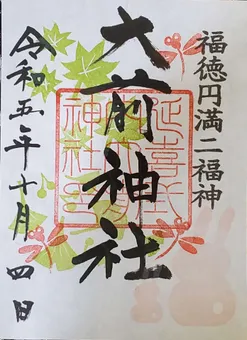 福徳円満二福神
大前神社
令和五年十月四日
延喜式
神社